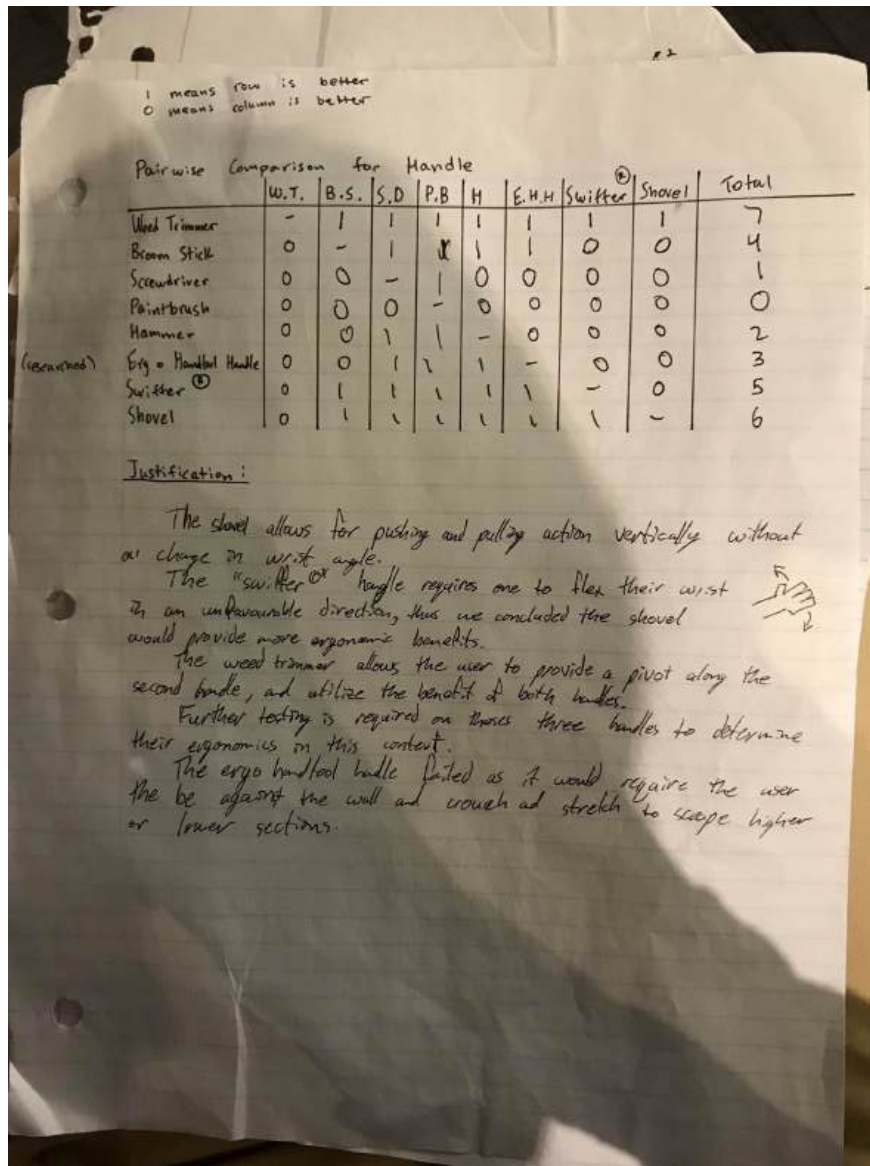 # 2
1 means row is better
0 means column is better
Pairwise Comparison for Handle
W.T. B.S. S.D P.B H E.H.H Swifter ® Shovel Total
Weed Trimmer - 1 1 1 1 1 1 1 7
Broom Stick 0 - 1 1 1 1 0 0 4
Screwdriver 0 0 - 1 0 0 0 0 1
Paintbrush 0 0 0 - 0 0 0 0 0
Hammer 0 0 1 1 - 0 0 0 2
(researched) Erg. Handtool Handle 0 0 1 1 1 - 0 0 3
Swifter ® 0 1 1 1 1 1 - 0 5
Shovel 0 1 1 1 1 1 1 - 6
Justification:
The shovel allows for pushing and pulling action vertically without
a change in wrist angle.
The "swifter ®" handle requires one to flex their wrist
in an unfavourable direction, thus we concluded the shovel
would provide more ergonomic benefits.
The weed trimmer allows the user to provide a pivot along the
second handle, and utilize the benefit of both handles.
Further testing is required on theses three handles to determine
their ergonomics in this context.
The ergo handtool handle failed as it would require the user
the be against the wall and crouch ad stretch to scape higher
or lower sections.